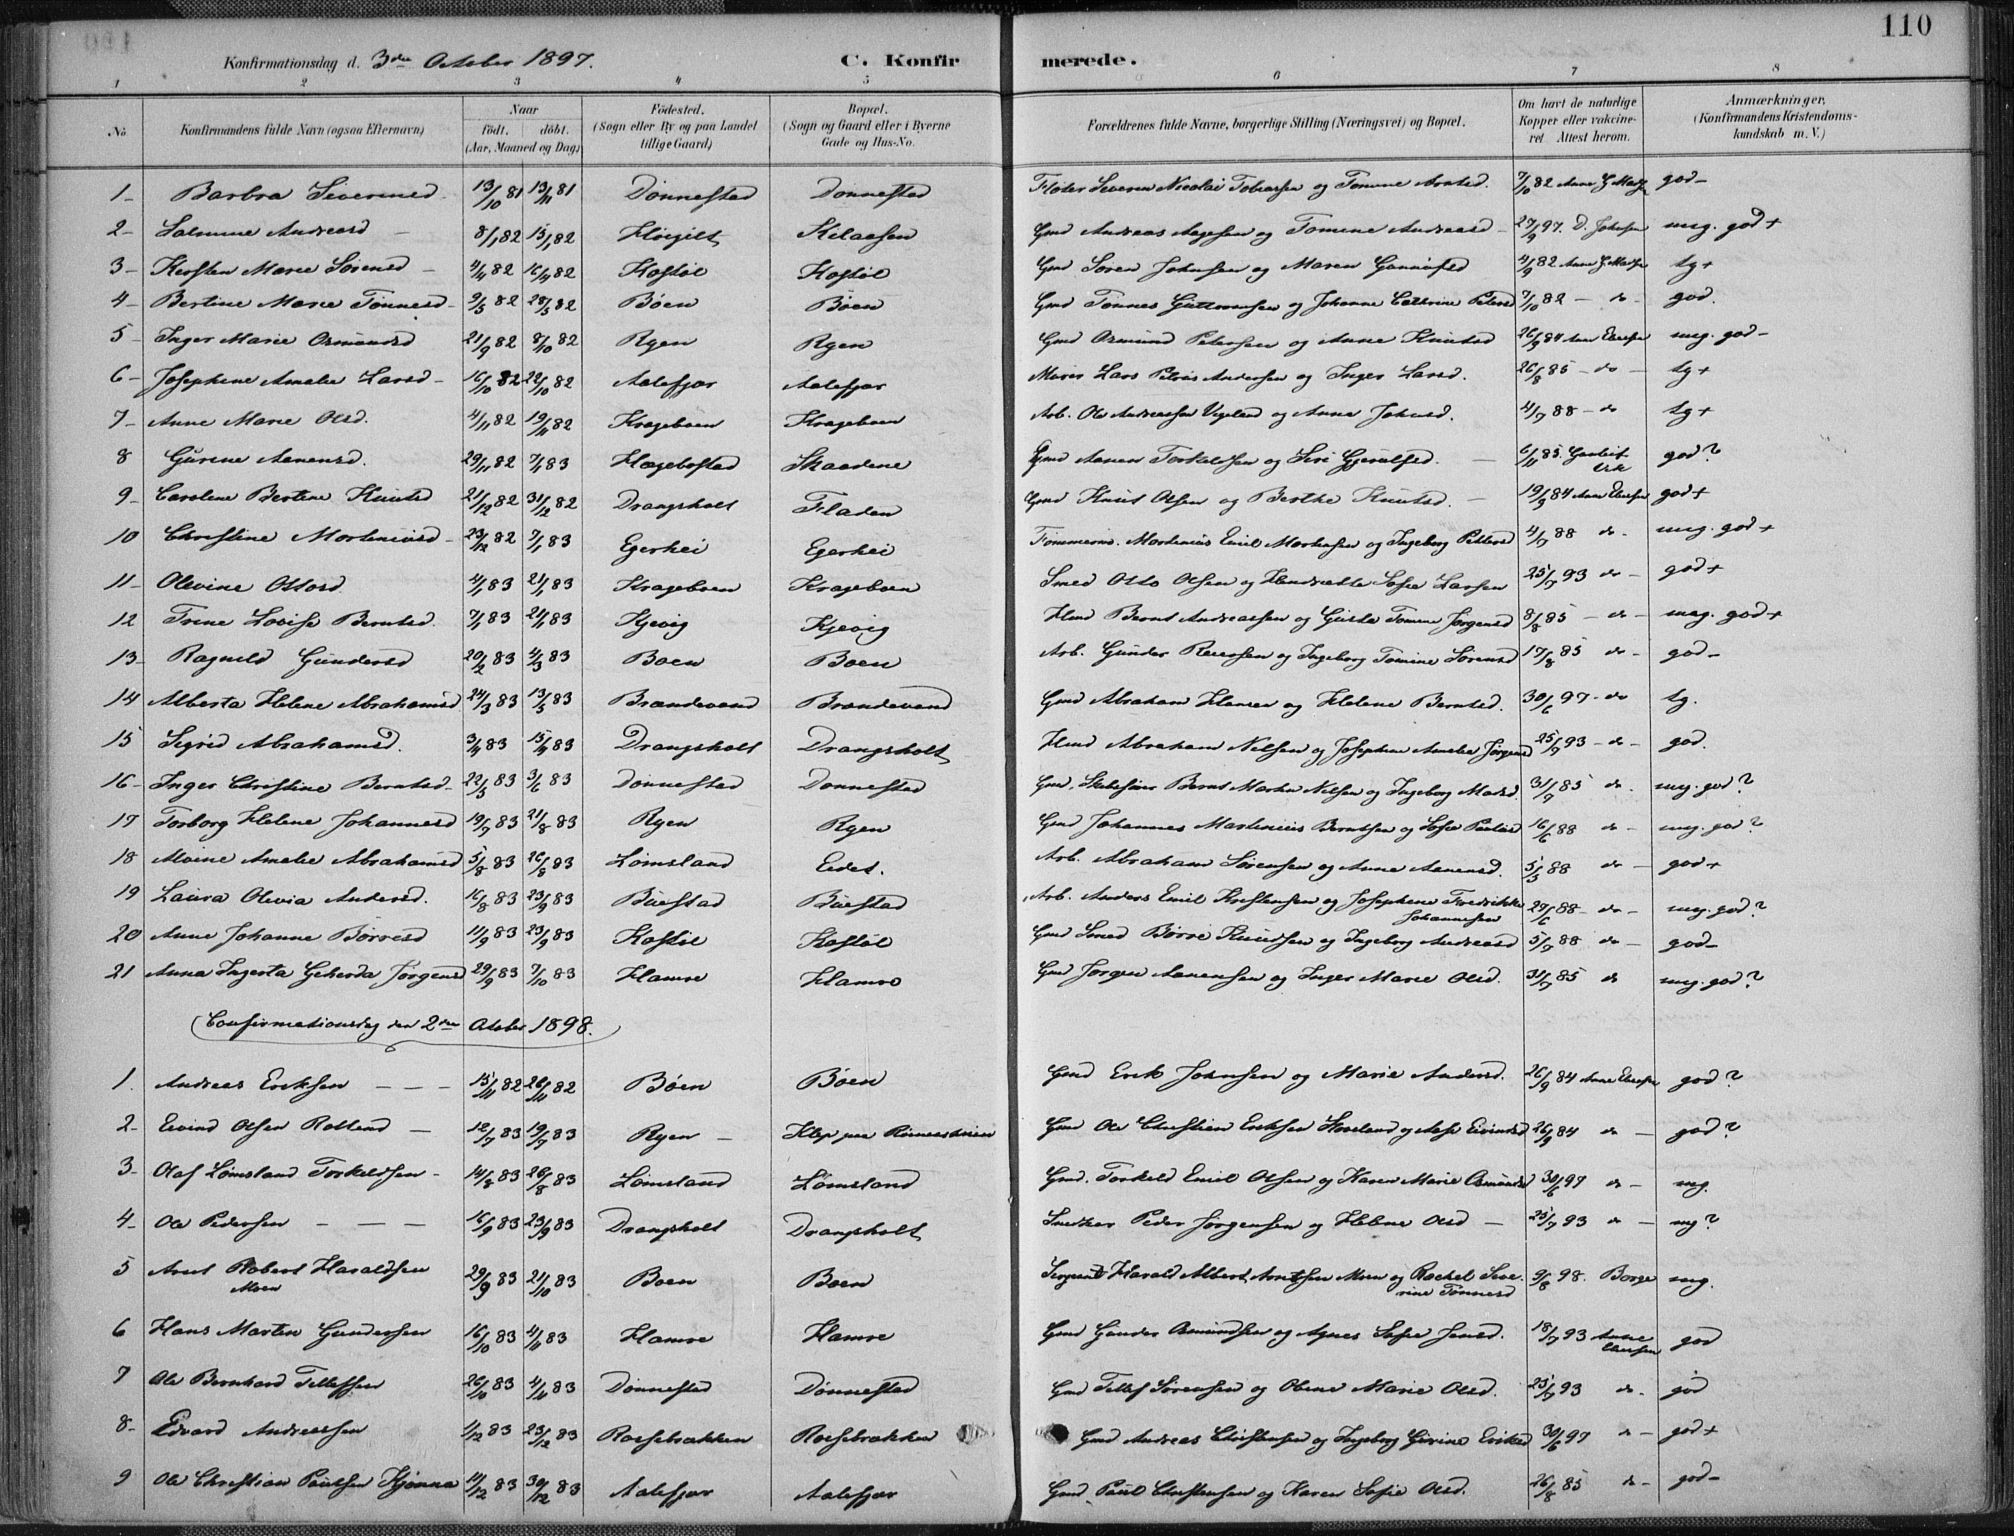 110
Konfirmationsdag d. 3die October 1897. C. Konfirmerede.
1 2 3 4 5 6 7 8
No Konfirmandens fulde Navn (ogsaa Efternavn) Naar födt. döbt. (Aar, Maaned og Dag) Födested. (Sogn eller By og paa Landet tillige Gaard) Bopæl. (Sogn og Gaard eller i Byerne Gade og Hus-No. Forældrenes fulde Navne, borgerlige Stilling (Næringsvei) og Bopæl. Om havt de naturlige Kopper eller vakcineret Attest herom. Anmærkninger, (Konfirmandens Kristendomskundskab m. V.)
1- Barbra Severinsd 13/10 81 13/11 81 Dönnestad Dönnestad Severin Nicolai Tobiassen og Tomine Arntsd. 7/10 82 Anne G. god-
2- Andreasd 8/1 82 15/1 82 Kilaasen Gmd Andreas Aagesen og Tomine Andreasd 27/9 97. D. Johnsen meg. god+
3- Kirsten Marie Sörensd 4/4 82 16/4 82 Kostöl Kostöl Gmd Sören Johnsen og Maren 4/9 82 Anne G. tg+
4- Bertine Marie Tönnesd 9/5 82 28/5 82 Böen Böen Gmd Tönnes Guttormsen og Johanne Cathrine Petersd 7/10 82 - do - god.
5- Inger Marie Osmundsd 21/9 82 8/10 82 Ryen Ryen Gmd Osmund Petersen og Anne Knutsd 26/9 84 Anne Ellevsen meg. god-
6- Josephine Amalie Larsd 16/10 82 22/10 82 Aalefjær Aalefjær Murer Lars Petrus Andersen og Inger Larsd. 26/8 85 - do - tg+
7- Anne Marie Olsd. 4/11 82 19/11 82 Krageboen Krageboen Arb. Ole Andreassen Vigeland og Anna Johnsd. 4/7 88 - do tg+
8 Gurine Aanensd. 29/11 82 7/1 83 Hægebostad Skaadene Gmd Aanen Torkelsen og Siri Gjerulfsd. 6/11 85. god?
9- Caroline Bertine Knutsd 21/12 82 31/12 82 Drangsholt Fladen Gmd Knut Olsen og Berthe Knutsd. 19/9 84 Anne Ellevsen god+
10 Christine Morteniusd 23/12 82 7/1 83 Egerhei Egerhei Tömmerm. Mortenius Emil Mortensen og Ingeborg Pettersd 4/7 88 do - meg. god+
11- Olevine Ottosd 4/1 83 21/1 83 Krageboen Krageboen Smed Otto Olsen og Hendrikke Sofie Larsen 25/7 93 do - god+
12 Trine Lovise Berntsd. 7/1 83 21/1 83 Kjevig Kjevig Hmd Bernt Andreassen og Gusta Tomine Jörgensd 8/8 85 - do - meg. god+
13- Ragnild Gundersd 20/2 83 4/3 83 Boen Boen Arb. Gunder Reiersen og Ingeborg Tomine Sörensd 17/8 85 do - god-
14 Alberta Helene Abrahamsd 24/3 83 13/5 83 Brandevand Brandevand Gmd Abraham Hansen og Helene Berntsd. 30/6 97 - do tg.
15 Sigrid Abrahamsd. 3/4 83 15/4 83 Drangsholt Drangsholt Hmd Abraham Nilsen og Josephine Amalie Jörgensd 25/7 93 - do - god.
16- Inger Christine Berntsd- 22/5 83 3/6 83 Dönnestad Dönnestad Gmd, Bernt Martin Nilsen og Ingeborg Madsd. 31/7 85 do. meg. god?
17 Torborg Helene Johannesd 19/7 83 21/8 83 Ryen Ryen Gmd Johannes Martinius Berntsen og Sofie Paulsd 16/6 88 do - meg. god?
18 Alvine Amalie Abrahamsd 5/8 83 26/8 83 Lömsland Eidet. Arb. Abraham Sörensen og Anne Aanensd. 5/5 88 do - god+
19 Laura Olivia Andersd. 16/8 83 23/9 83 Buestad Buestad Arb. Anders Emil Kristensen og Josephine Fredrikke Johannesen 29/6 88- do - meg. god?
20 Anne Johanne Börresd 11/9 83 23/9 83 Kostöl Kostöl Gmd Smed Börre Knudsen og Ingeborg Andreasd 5/7 88 do - god-
21 Anna Ingerta Jörgensd 29/9 83 7/10 83 Hamre Hamre Gmd Jörgen Aanensen og Inger Marie Olsd. 31/7 85 do meg. god?
Confirmationsdag den 2den October 1898.
1. Andreas Eriksen - - - 15/11 82 26/11 82 Böen Böen Gmd Erik Johnsen og Marie Andersd. 26/9 84 Anne Ellevsen god?
2- Eivind Olsen - 12/7 83 19/7 83 Ryen - Gmd Ole Christian Eriksen og Aase Eivindsd 26/9 84 do - god?
3- Olaf Lömsland Torkeldsen - 14/8 83 26/8 83 Lömsland Lömsland Gmd. Torkeld Emil Olsen og Karen Marie Osmundsd 30/6 97 do - mg.
4- Ole Pedersen - - - 16/9 83 23/9 83 Drangsholt Drangsholt Snedker Peder Jörgensen og Helene Olsd - 25/7 93 do - mg?
5 Arnt Robert Haraldsen Moen 29/9 83 21/10 83 Boen Boen Sergeant Harald Albert Arntsen Moen og Rachel Severine Tönnesd 9/8 98. Borge mg.
6 Hans Martin Gundersen 16/10 83 4/11 83 Hamre Hamre Gmd Gunder Osmundsen og Agnes Sofie Jensd. 18/7 93 Anne Ellevsen god
7 Ole Bernhard Tellefsen 26/10 83 4/11 83 Dönnestad Dönnestad Gmd Tellef Sörensen og Oline Marie Olsd. 25/7 93 do. god
8- Edvard Andreassen 1/12 83 23/12 83 Rossebrakken Rossebrakken Gmd Andreas Christensen og Ingeborg Eriksd 30/6 97 do - god+
9 Ole Christian Paulsen Kjönna 11/12 83 30/12 83 Aalefjær Aalefjær Gmd, Paul Christensen og Karen Sofie Olsd. 26/8 85 do - god-